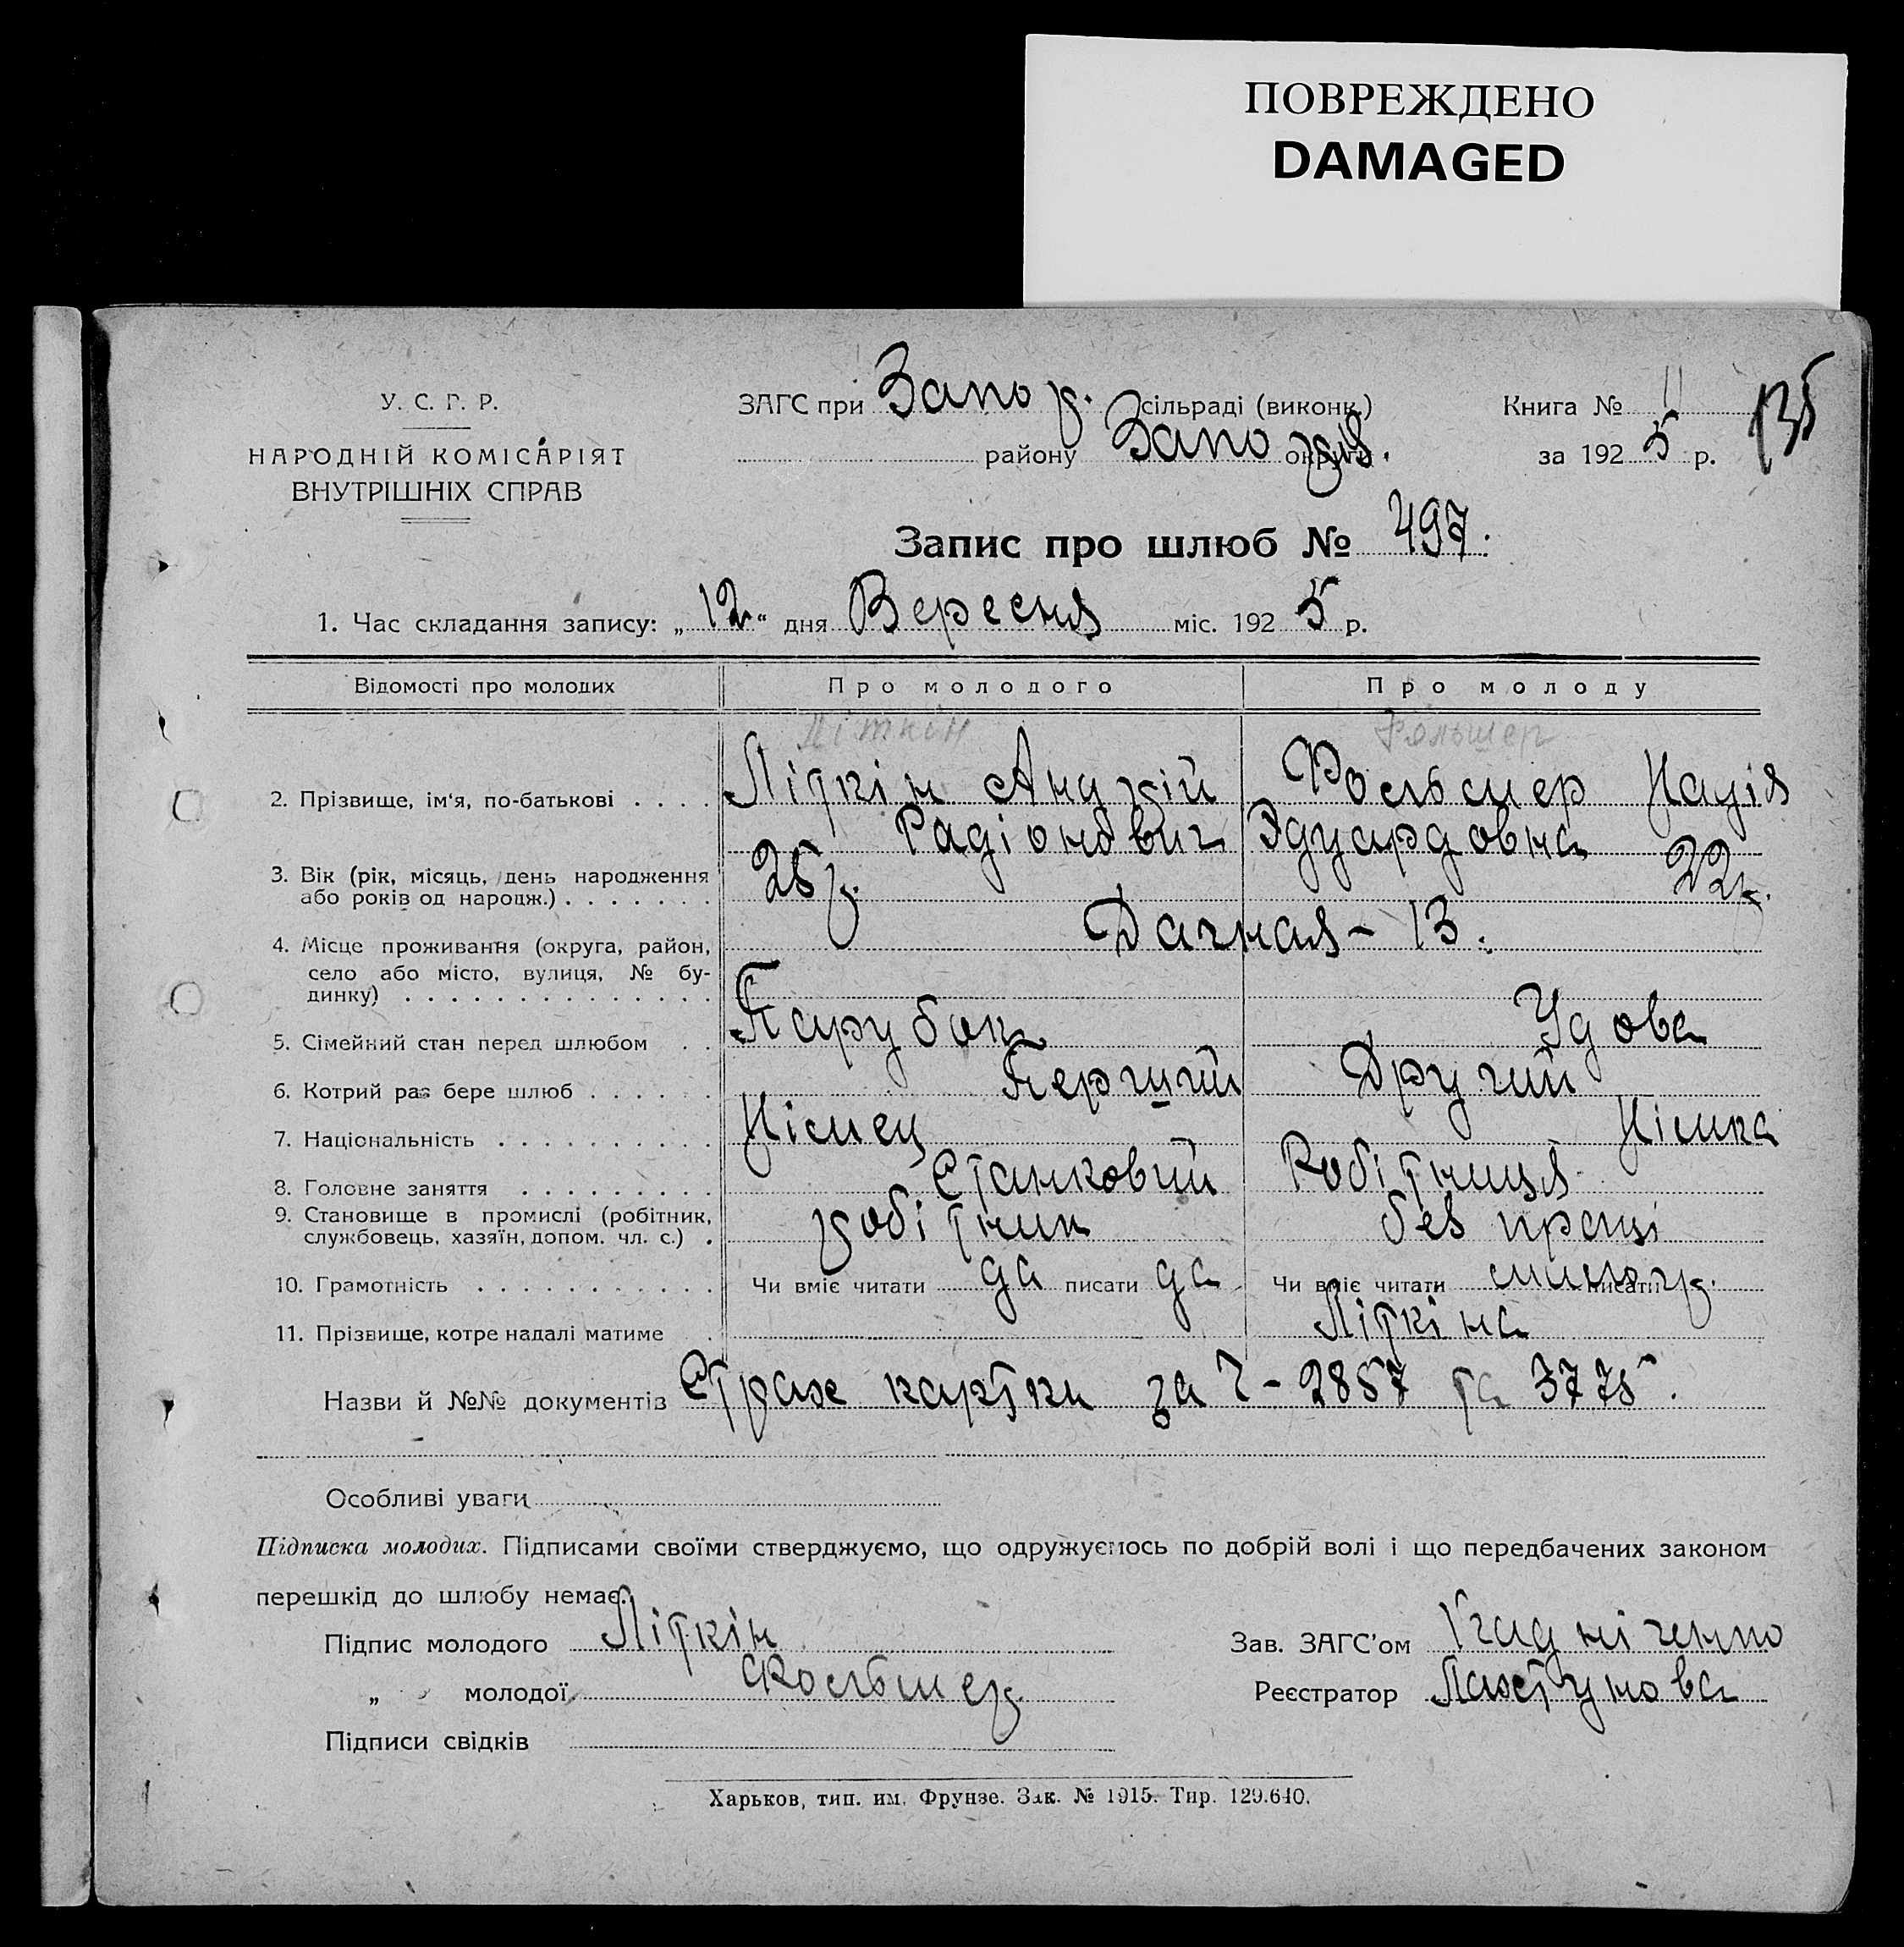 ПОВРЕЖДЕНО
DAMAGED
У. С. Г. Р.
НАРОДНІЙ КОМІСАРІЯТ
ВНУТРІШНІХ СПРАВ
ЗАГС при Запор. сільраді (виконк.)
району Запоріз. округи
Книга № 11
за 1925 р.
135
Запис про шлюб № 497.
1. Час складання запису: „12“ дня Вересня міс. 1925 р.
Відомості про молодих Про молодого Про молоду
Літкін Фольшер
2. Прізвище, ім‘я, по-батькові . . . . Літкін Андрій Радіонович Фольшер Надія Эдуардовна
3. Вік (рік, місяць, день народження
або років од народж.) . . . . . . . 25 р. 22 р.
4. Місце проживання (округа, район,
село або місто, вулиця, № бу-
динку) . . . . . . . . . . . . . . Дачная – 13.
5. Сімейний стан перед шлюбом . . Парубок Удова
6. Котрий раз бере шлюб . . . . . . Перший Другий
7. Національність . . . . . . . . . . Німец Німка
8. Головне заняття . . . . . . . . . Станковий Робітниця
9. Становище в промислі (робітник,
службовець, хазяїн, допом. чл. с.) . робітник без праці
10. Грамотність . . . . . . . . . . . Чи вміє читати да писати да Чи вміє читати писати
11. Прізвище, котре надалі матиме . Літкіна
Назви й №№ документів Страх картки за Ч – 2857 та 3775.
Особливі уваги
Підписка молодих. Підписами своїми стверджуємо, що одружуємось по добрій волі і що передбачених законом
перешкід до шлюбу немає.
Підпис молодого Літкін
Зав. ЗАГС’ом
„ молодої Фольшер
Реєстратор Ластунова
Підписи свідків
Харьков, тип. им. Фрунзе. Зак. № 1915. Тир. 129.640.